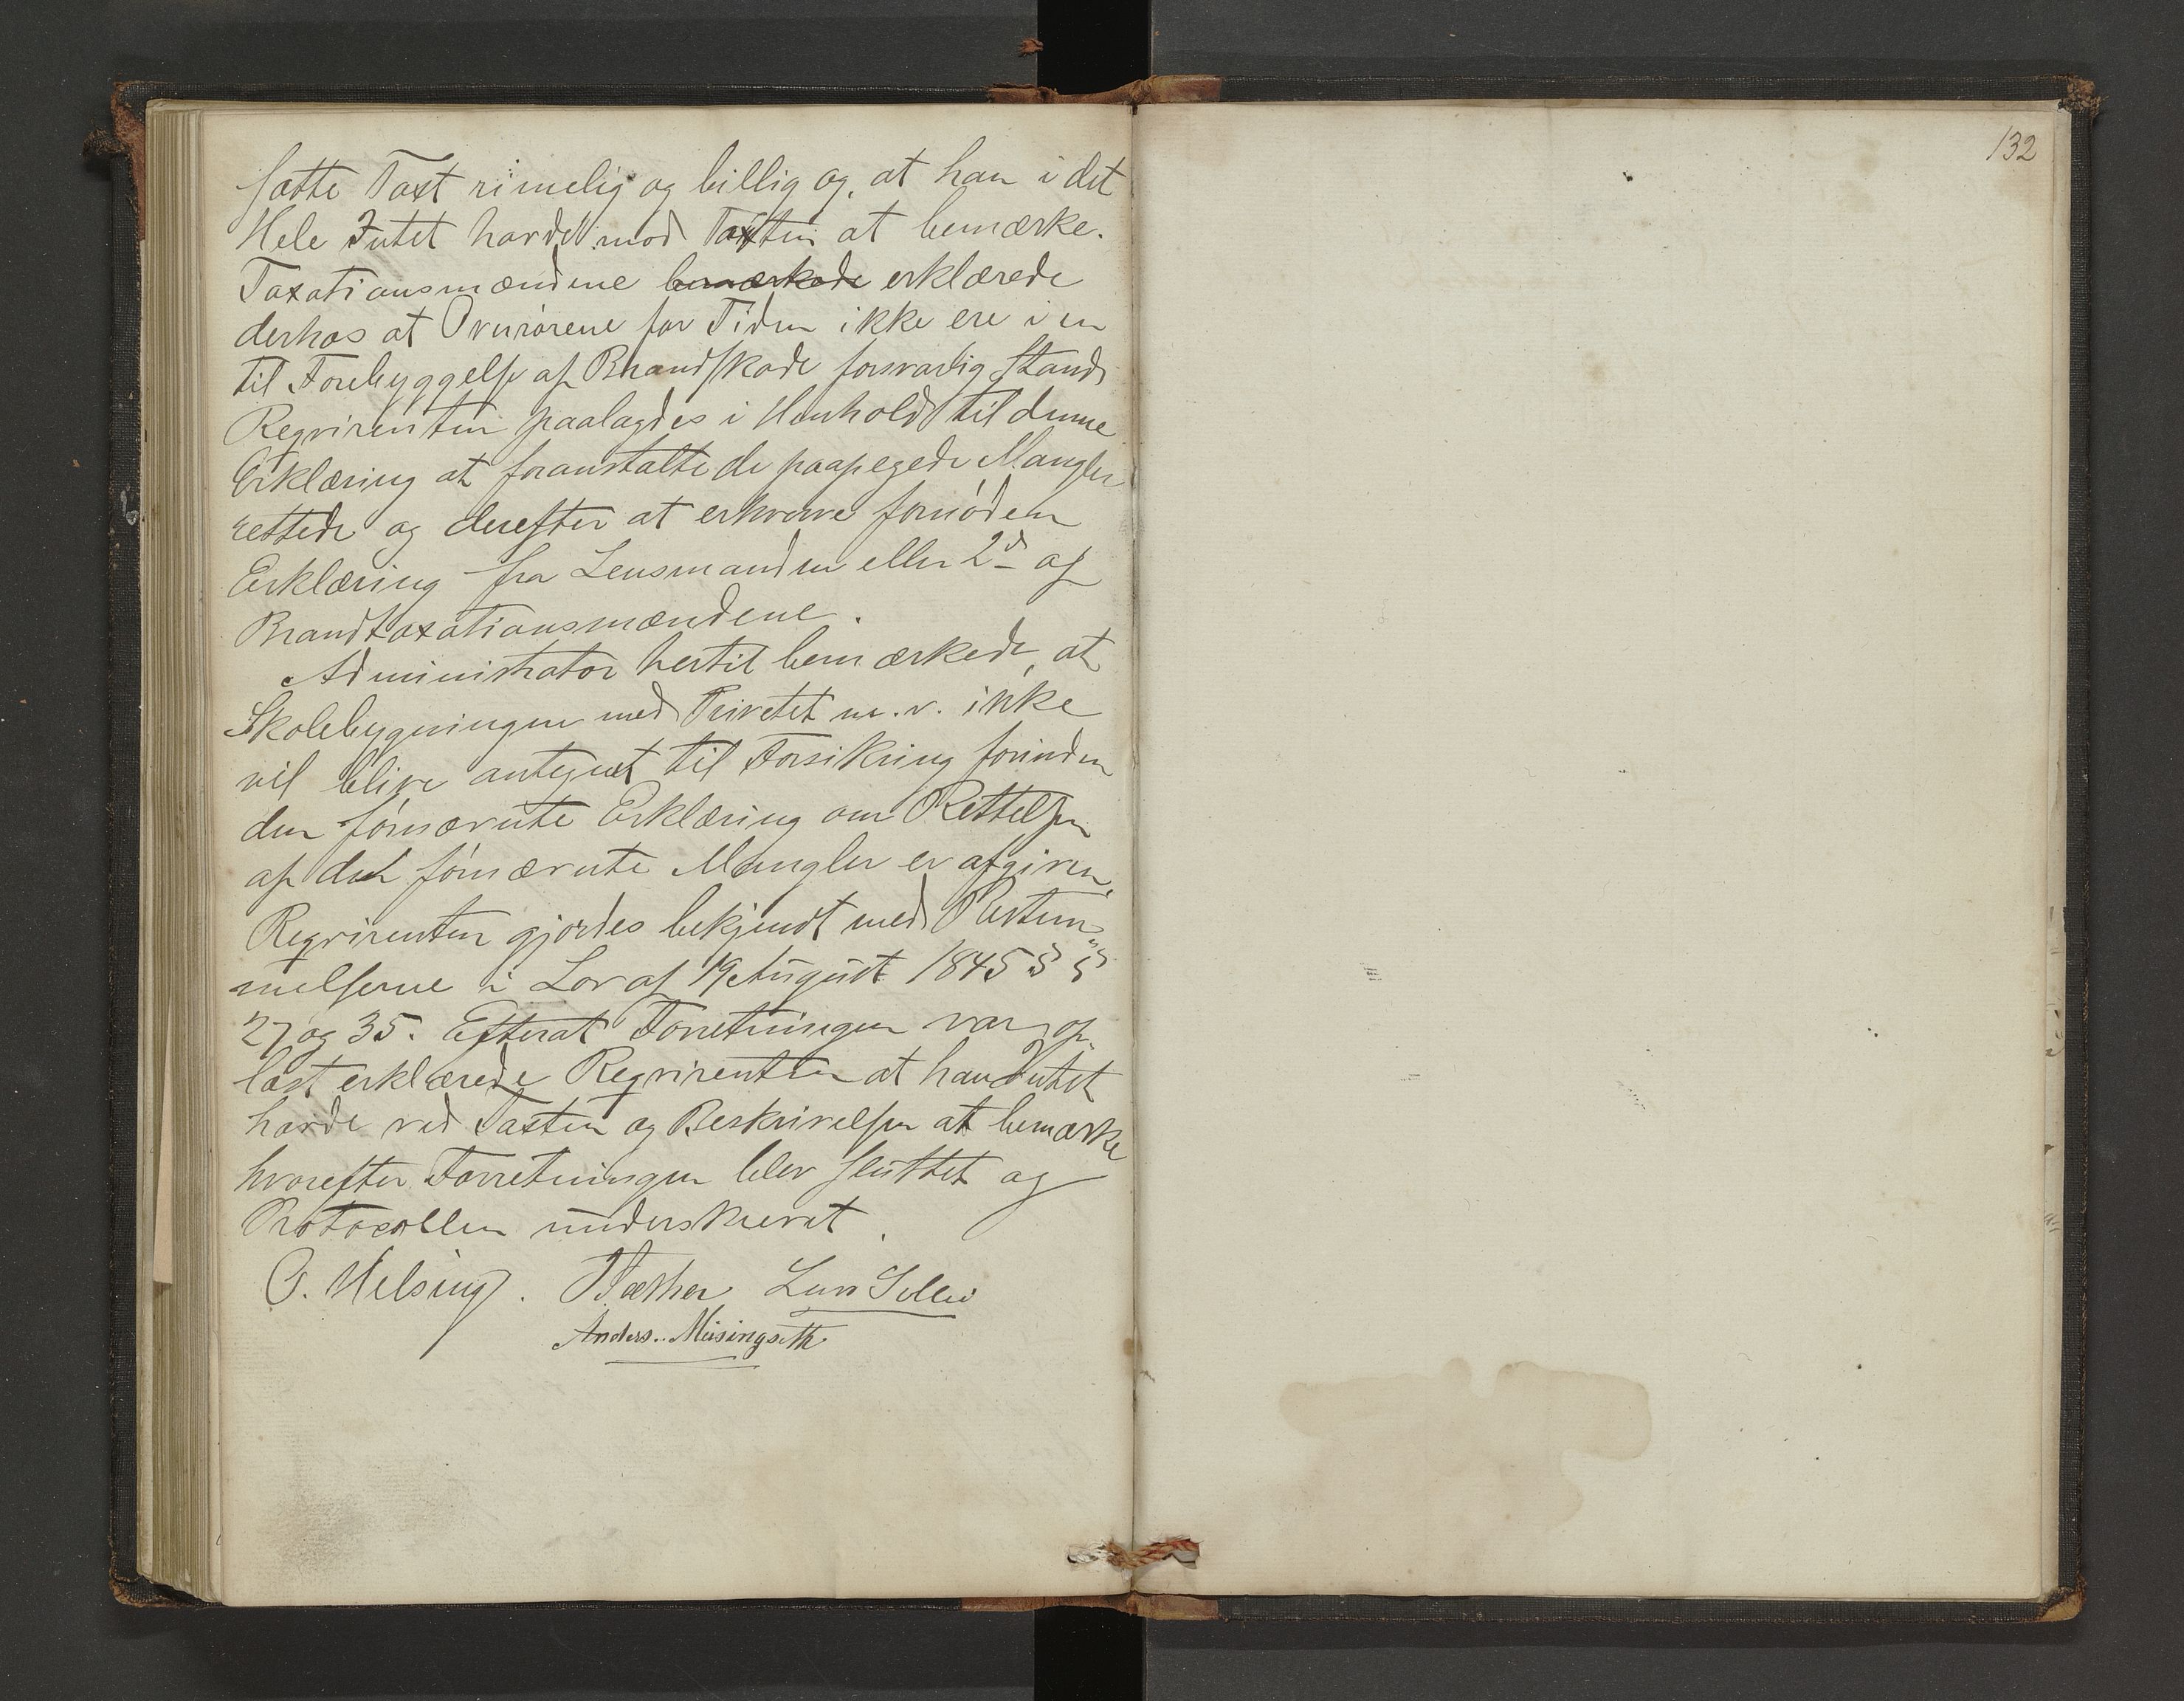 satte Taxt rimelig og billig og, at han i det
Hele Intet havde mod Taxten at bemærke.
Taxationsmændene bemærkede erklærede
derhos at Ovnrørene for Tiden ikke ere i en
til Forebyggelse af Brandskade forsvarlig Stand
Reqvirenten paalagdes i Henhold til denne
Erklæring at foranstalte de paapegede Mangler
rettede og derefter at erhverve fornøden
Erklæring fra Lensmanden eller 2de af
Brandtaxationsmændene.
Administrator hertil bemærkede, at
Skolebygningen med Privetet m.v. ikke
vil blive antegnet til Forsikring forinden
den førnævnte Erklæring om Rettelsen
af de førnævnte Mangler er afgiven.
Reqvirenten gjordes bekjendt med Bestem-
melserne i Lov af 19 August 1845 § §
27 og 35. Efterat Forretningen var op-
læst erklærede Reqvirenten at han Intet
havde ved Taxten og Beskrivelsen at bemærke
hvorefter Forretningen blev sluttet og
Protocollen underskrevet.
O. Helsing. Sæther Lars Sollei
Anders Musingseth
132